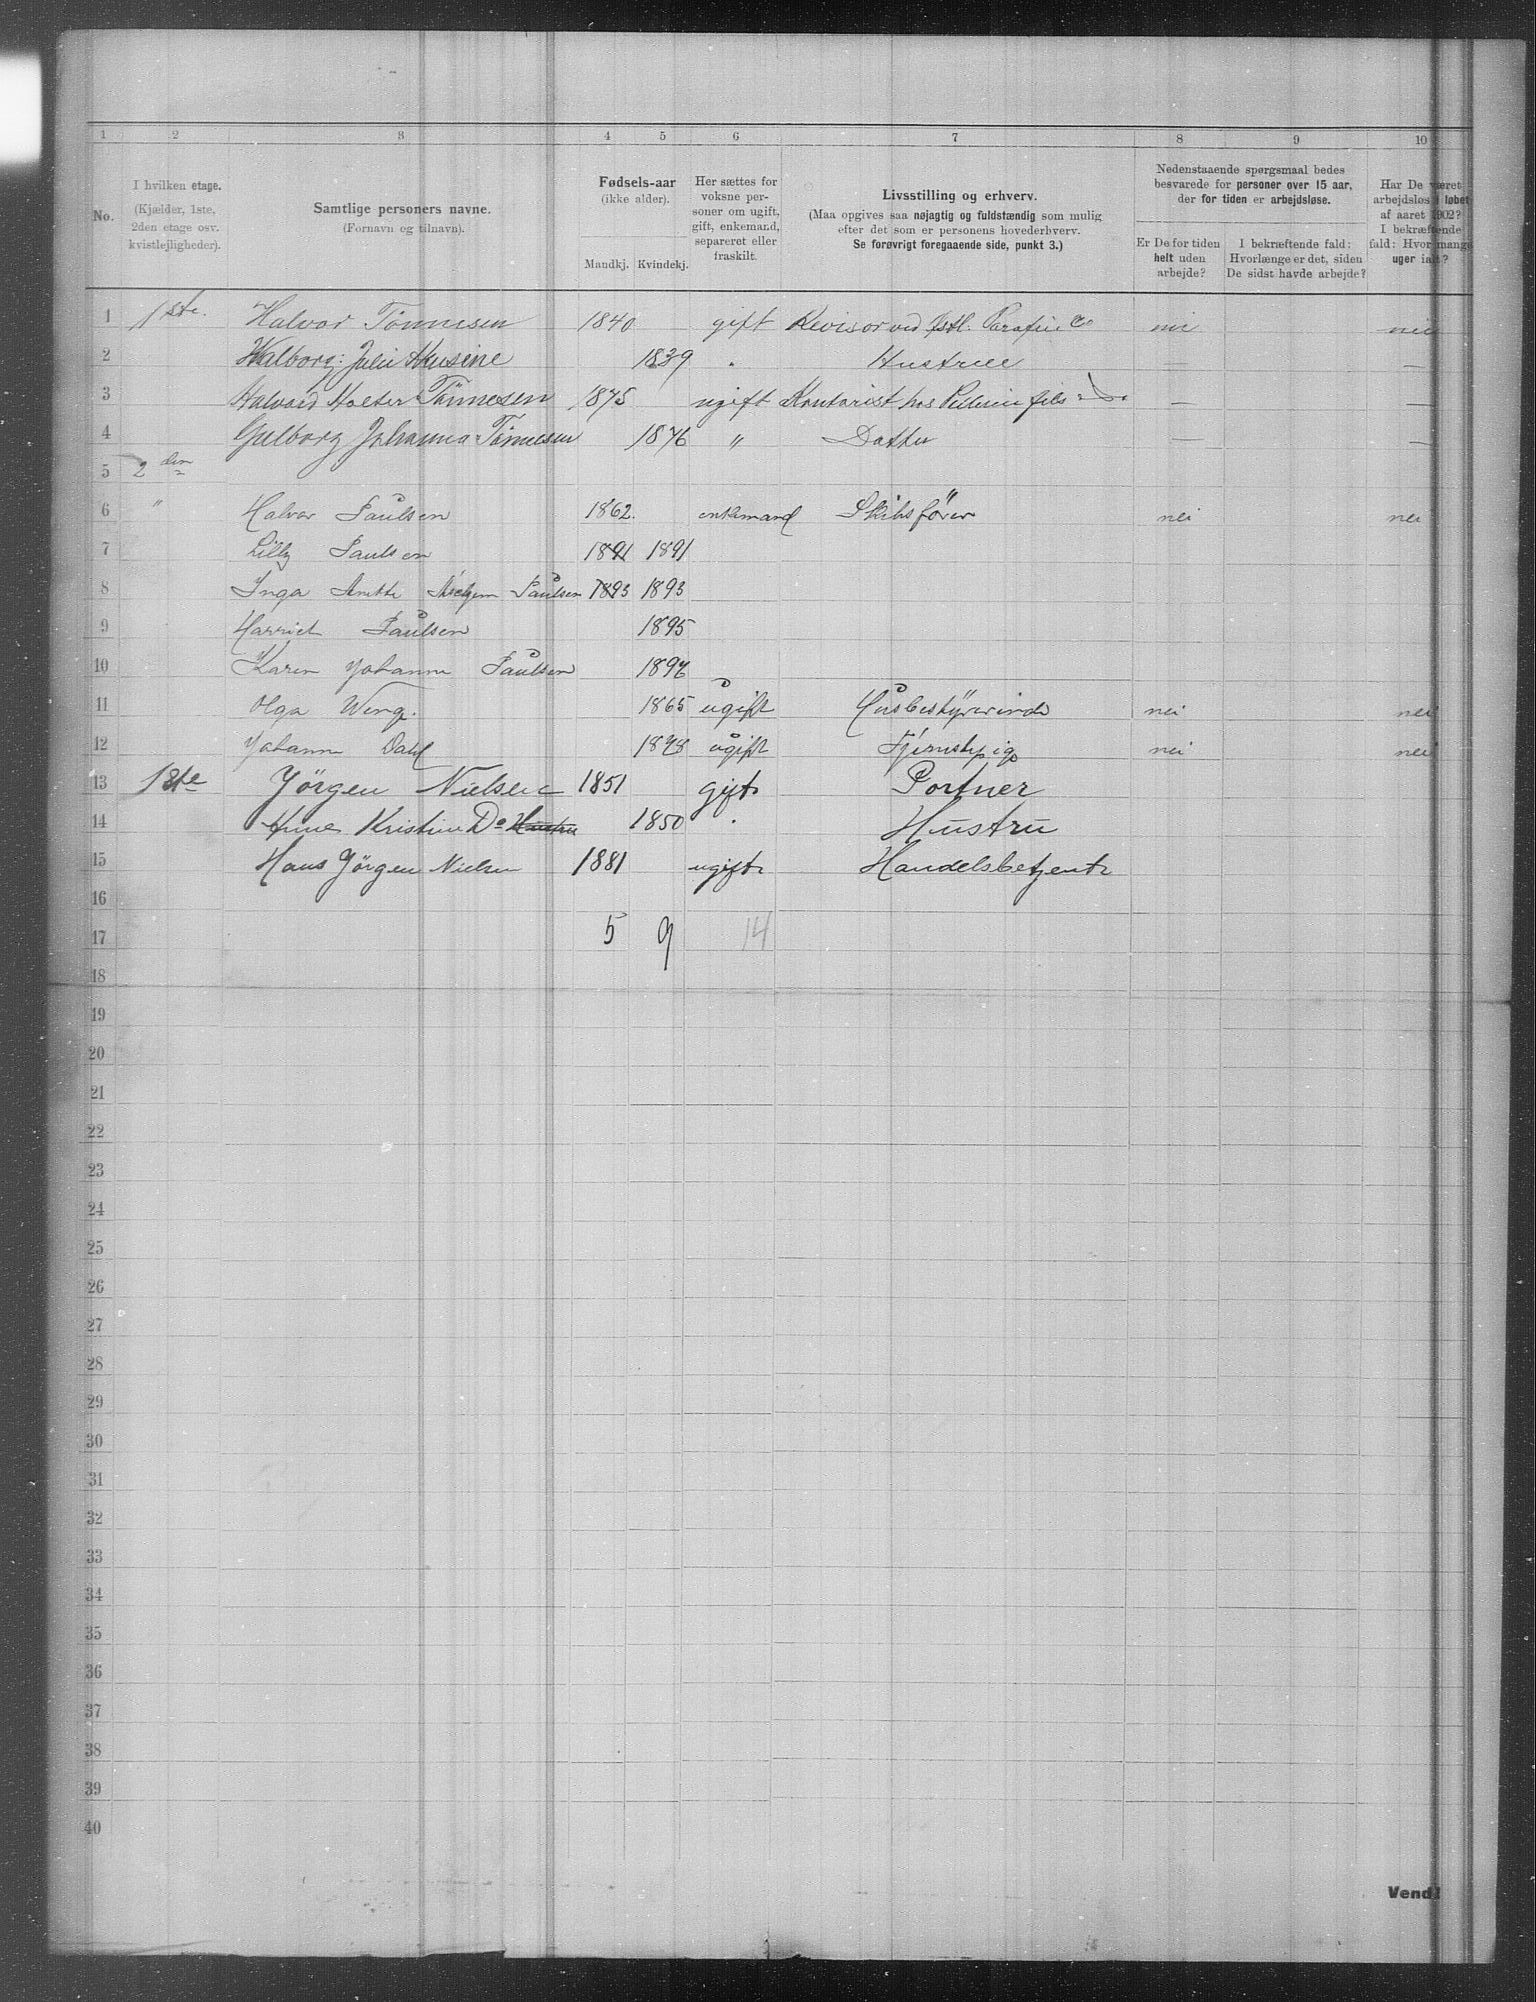 1 2 3 4 5 6 7 8 9 10
No.
I hvilken etage.
(Kjælder, 1ste,
2den etage osv.
kvistlejligheder).
Samtlige personers navne.
(Fornavn og tilnavn).
Fødsels-aar
(ikke alder).
Mandkj. Kvindekj.
Her sættes for
voksne per-
soner om ugift,
gift, enkemand,
separeret eller
fraskilt.
Livsstilling og erhverv.
(Maa opgives saa nøjagtig og fuldstændig som mulig
efter det som er personens hovederhverv.
Se forøvrigt foregaaende side, punkt 3.)
Nedenstaaende spørgsmaal bedes
besvarede for personer over 15 aar,
der for tiden er arbejdsløse.
Er De for tiden
helt uden
arbejde?
I bekræftende fald:
Hvorlænge er det, siden
De sidst havde arbejde?
Har De været
arbejdsløs i løbet
af aaret 1902?
I bekræftende
fald: Hvor mange
uger ialt?
1 1ste. Halvor Tönnesen 1840 gift Revisor ved Parafin Co nei nei
2 Walborg Julie 1839 " Hustrue — —
3 Halvard Holter Tönnesen 1875 ugift Kontorist hos Pellerin fils — —
4 Gulborg Johanna Tönnesen 1876 " Datter — —
5 2 den
6 " Halvor Paulsen 1862. enkemand Skibsförer nei nei
7 Lilly Paulsen 1891 1891
8 Inga Anette Paulsen 1893 1893
9 Harriet Paulsen 1895
10 Karen Johanne Paulsen 1897
11 Olga Weng. 1865 ugift Husbestyrerinde nei nei
12 Johanne Dahl 1878 ugift Tjenstepige nei nei
13 1ste Jörgen Nielsen 1851 gift Portner
14 Anne Kristine Do Hustru 1850 " Hustru
15 Hans Jörgen Nielsen 1881 ugift Handelsbetjent
16
17 5 9 14
18
19
20
21
22
23
24
25
26
27
28
29
30
31
32
33
34
35
36
37
38
39
40
Vend!